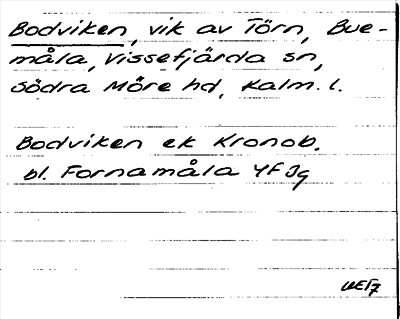 Bodviken, vik av Törn, Bue-
måla, Vissefjärda sn,
Södra Möre hd, Kalm. l.
Bodviken ek Kronob.
bl. Fornamåla 4F Jg